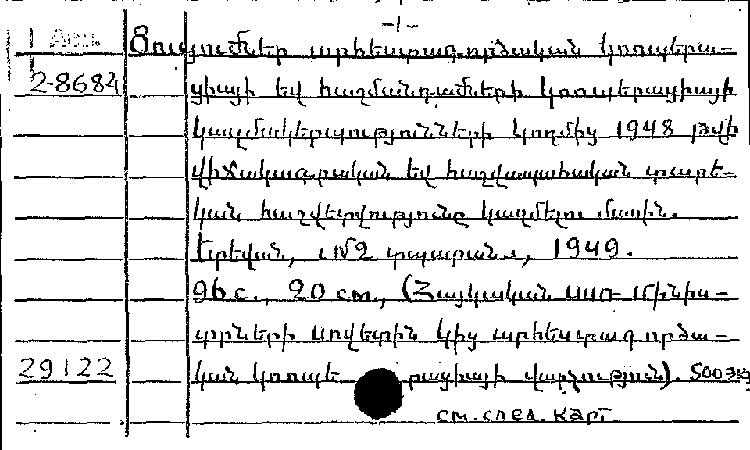 -1-
Ցուցումներ արհեստագործական կոոպերա-
2-8684 ցիայի եվ հաշմանդամների կոոպերացիայի
կազմակերպությունների կողմից 1948 թվի
վիճակագրական եվ հաշվապահական տարե-
կան հաշվետվությունը կազմելու մասին.
Երեվան, տպարան, 1949.
96 с., 20 см., (Հայկական ՍՍՌ Մինիս-
տրների Սովետին կից արհեստագործա-
29122 կան կոոպե րացիայի վարչություն). 500 էկզ
см. след. карт.